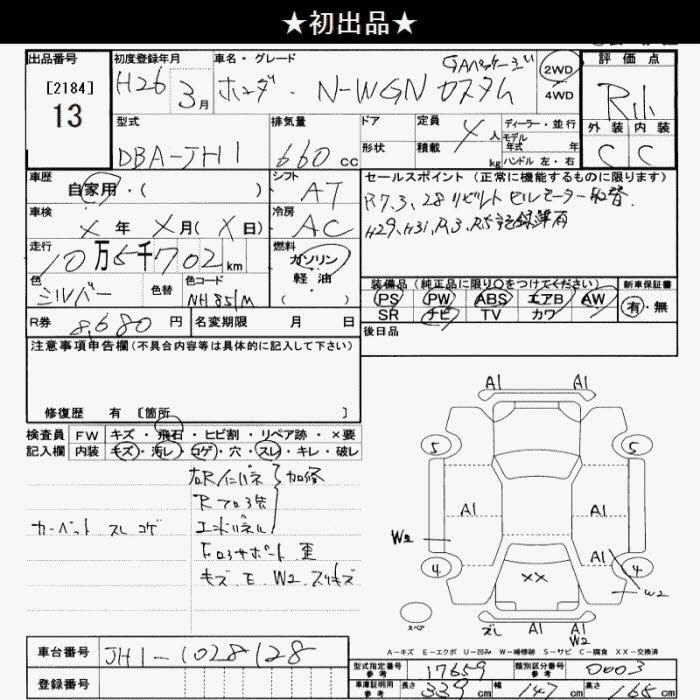 ★初出品★
出品番号
[2184]
13
初度登録年月
H26 3月
車名・グレード
GAパッケージ
ホンダ N-WGN カスタム
2WD
4WD
評価点
外装 内装
C C
型式
DBA-JH1
排気量
660cc
ドア
形状
定員 4人
積載 kg
ディーラー・並行
モデル
年式 年
ハンドル 左・右
車歴
自家用・( )
シフト
AT
車検
X年 X月(X日)
冷房
AC
走行
10万5千702km
燃料
ガソリン
軽油
( )
色
シルバー
色替
色コード
NH851M
R券 8,680円
名変期限 月 日
セールスポイント(正常に機能するものに限ります)
R7.3.28リビルトセルモーター取替.
H29,H31,R3,R5記録簿有
装備品(純正品に限り○をつけてください)
新車保証書
PS PW ABS エアB AW
SR ナビ TV カワ
有・無
後日品
注意事項申告欄(不具合内容等は具体的に記入して下さい)
修復歴 有 [箇所 ]
検査員 FW キズ・飛石・ヒビ割・リペア跡・×要
記入欄 内装 キズ・汚レ・コゲ・穴・スレ・キレ・破レ
カーペット スレ コゲ
エンドパネル
キズ E W2 スリキズ
A1 A1
5 5
A1 A1
W2
A1
4 4
W2
XX
スペア
A1 A1
W2
A－キズ E－エクボ U－凹み W－補修跡 S－サビ C－腐食 XX－交換済
車台番号 JH1-1028128
登録番号
型式指定番号 参考 17659
類別区分番号 参考 0003
車庫証明用 参考 長さ 339cm 幅 147cm 高さ 165cm